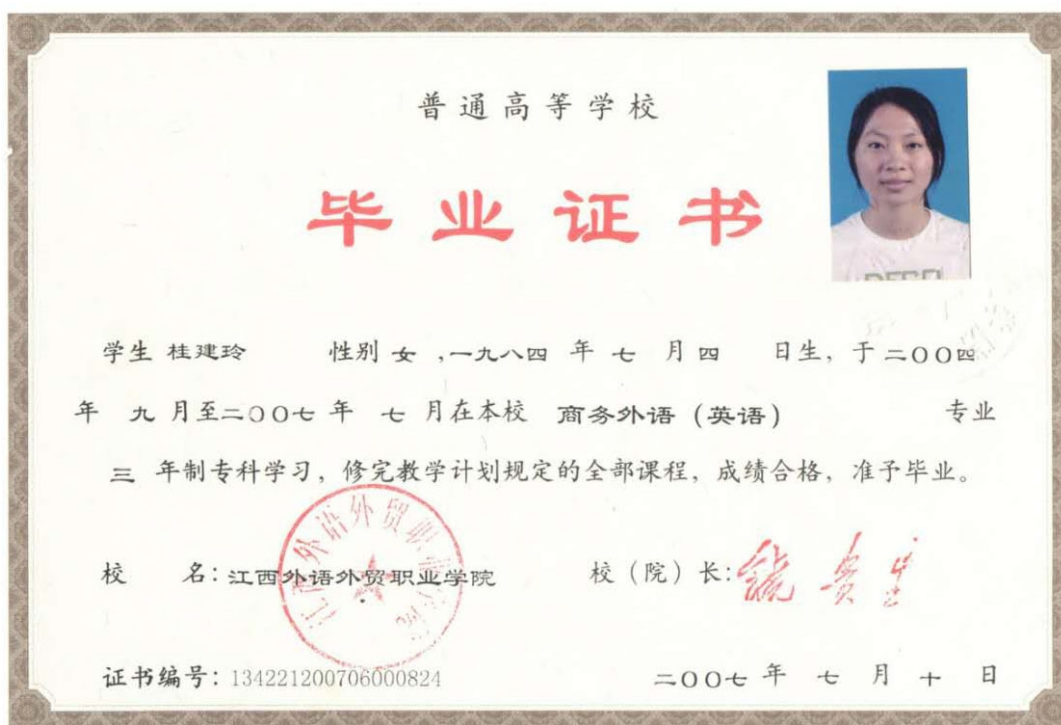 普通高等学校
毕业证书
学生 桂建玲 性别 女 ,一九八四 年 七 月 四 日生, 于 二〇〇四
年 九 月至二〇〇七 年 七 月在本校 商务外语 (英语) 专业
三 年制专科学习, 修完教学计划规定的全部课程, 成绩合格, 准予毕业。
校 名: 江西外语外贸职业学院 校 (院) 长:
证书编号: 134221200706000824 二〇〇七 年 七 月 十 日
江西外语外贸职业学院